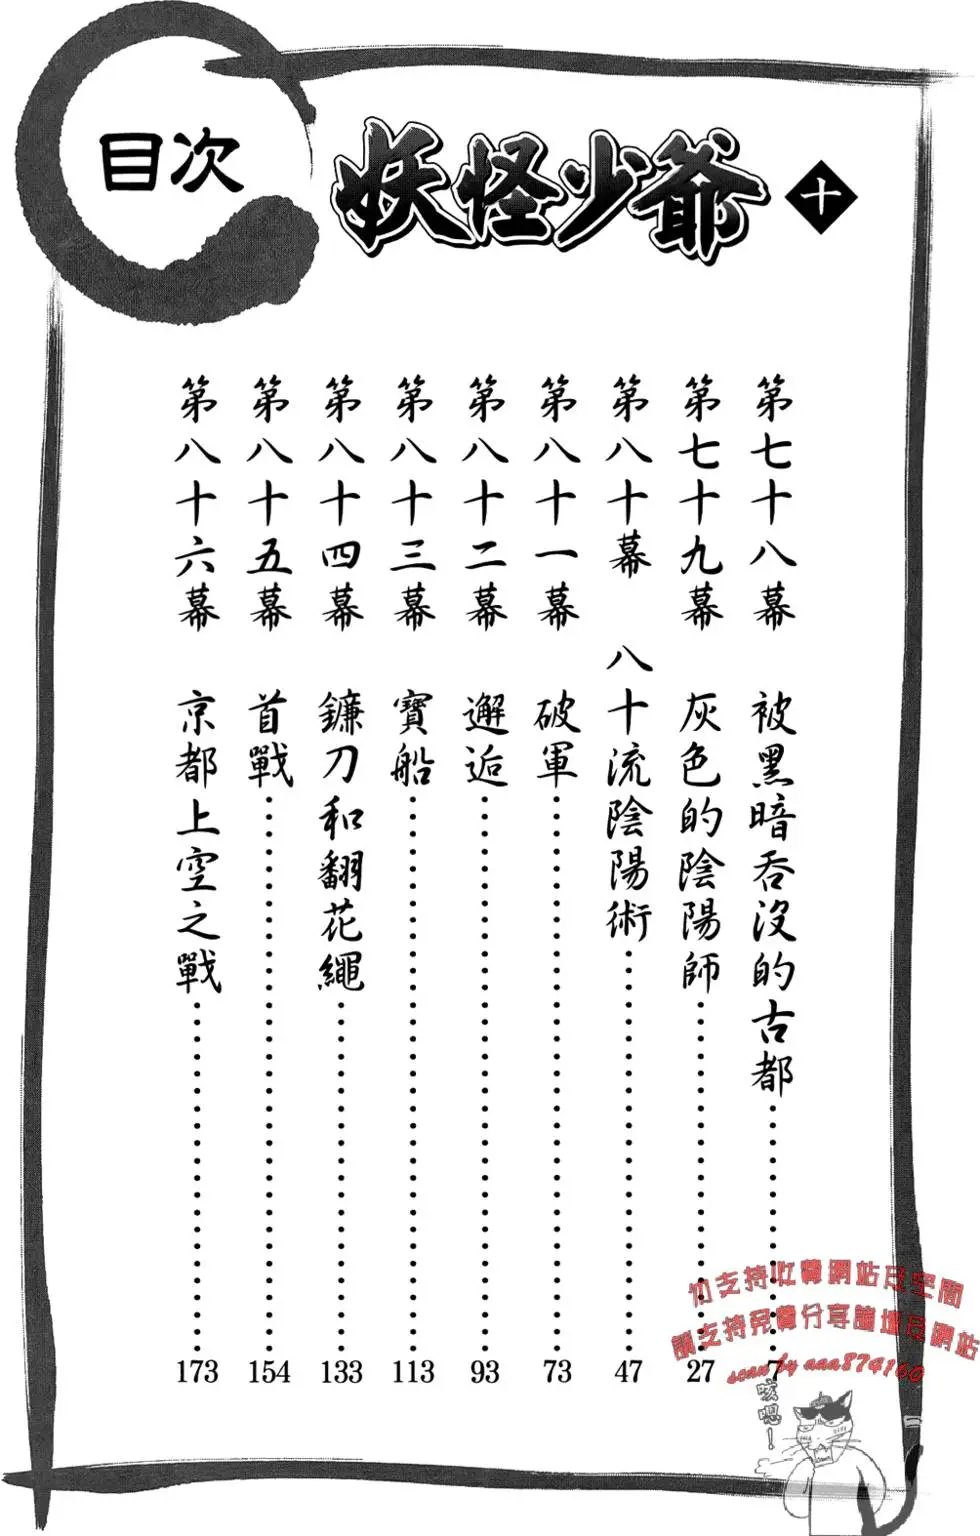 目次
妖怪少爺 十
第七十八幕 被黑暗吞沒的古都 7
第七十九幕 灰色的陰陽師 27
第八十幕 八十流陰陽術 47
第八十一幕 破軍 73
第八十二幕 邂逅 93
第八十三幕 寶船 113
第八十四幕 鐮刀和翻花繩 133
第八十五幕 首戰 154
第八十六幕 京都上空之戰 173
勿支持收費網站及空間
請支持免費分享論壇及網站
scan by aaa874160
咳嗯！